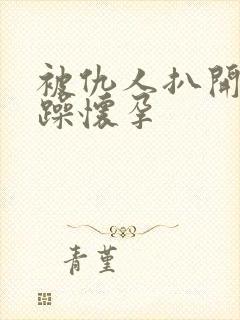 被仇人扒開
躁懷孕
青堇